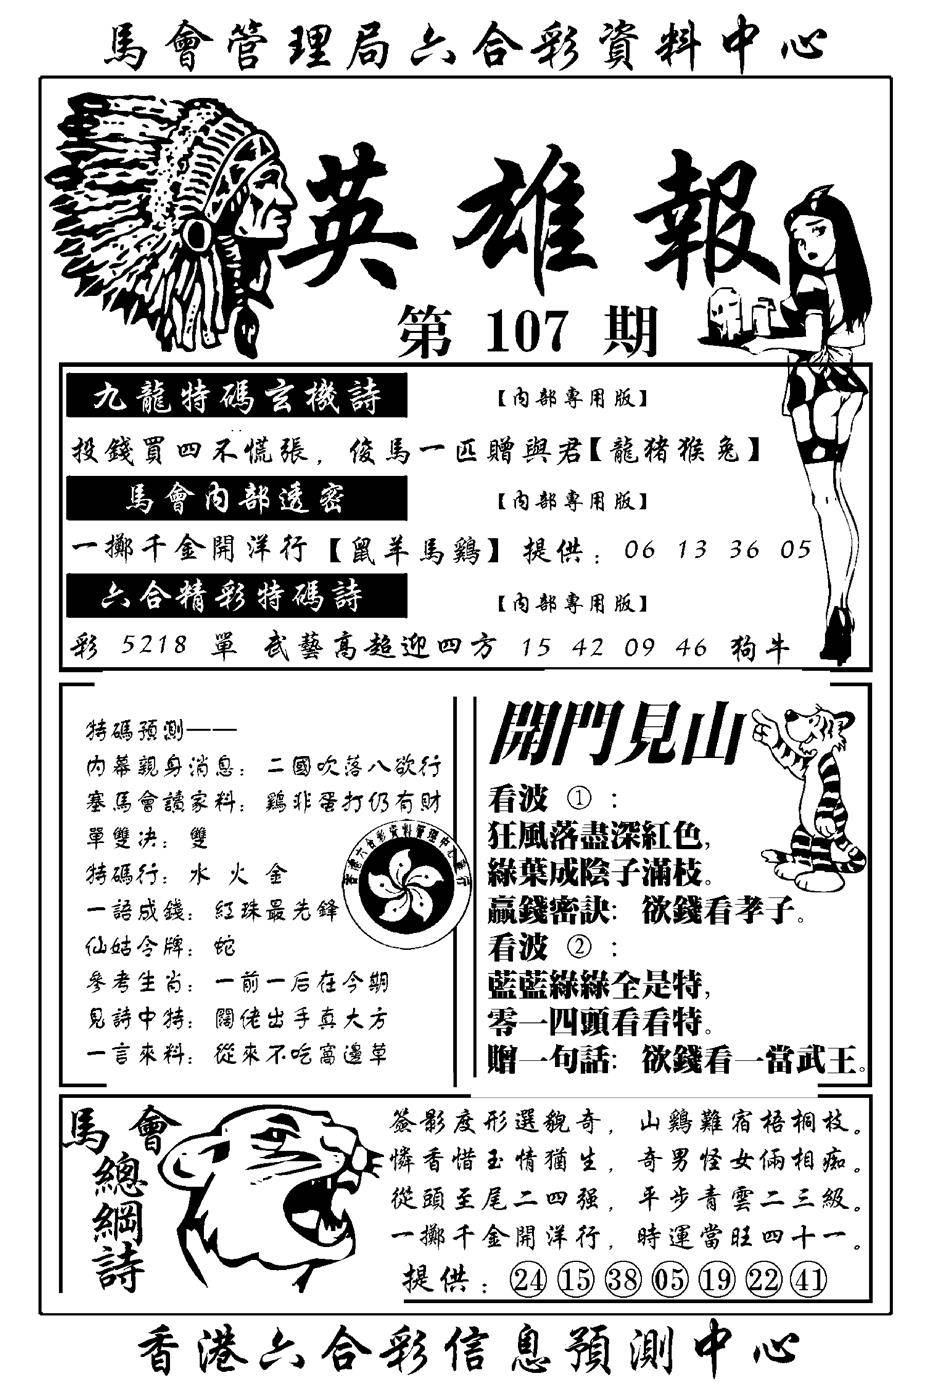 馬會管理局六合彩資料中心
英雄報
第 107 期
九龍特碼玄機詩 【內部專用版】
投錢買四不慌張，俊馬一匹贈與君【龍猪猴兔】
馬會內部透密 【內部專用版】
一擲千金開洋行【鼠羊馬鷄】提供：06 13 36 05
六合精彩特碼詩 【內部專用版】
彩 5218 單 武藝高超迎四方 15 42 09 46 狗牛
特碼預測——
內幕親身消息：二國吹落八欲行
塞馬會讀家料：鷄非蛋打仍有財
單雙決：雙
特碼行：水 火 金
一語成錢：紅珠最先鋒
仙姑令牌：蛇
參考生肖：一前一后在今期
見詩中特：闊佬出手真大方
一言來料：從來不吃窩邊草
香港六合彩資料管理中心發行
開門見山
看波 ①：
狂風落盡深紅色，
綠葉成陰子滿枝。
贏錢密訣：欲錢看孝子。
看波 ②：
藍藍綠綠全是特，
零一四頭看看特。
贈一句話：欲錢看一當武王。
馬會
總綱詩
簽影度形選貌奇，山鷄難宿梧桐枝。
憐香惜玉情猶生，奇男怪女倆相痴。
從頭至尾二四强，平步青雲二三級。
一擲千金開洋行，時運當旺四十一。
提供：㉔⑮㊳⑤⑲㉒㊶
香港六合彩信息預測中心